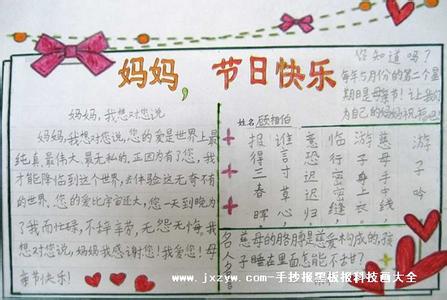 妈妈,节日快乐
你知道吗?
每年5月份的第二个星
期日是母亲节!让我们
为自己的妈妈祝福吧!
妈妈,我想对您说
妈妈,我想对您说,您的爱是世界上最
纯真、最伟大、最无私的,正因为有了您,我
才能降临到这个世界,去体验这无奇不有
的世界。您的爱比宇宙还大,您一天到晚为
了我而忙碌,不辞辛苦,无怨无悔。我
想对您说,妈妈我感谢您!我爱您!母
亲节快乐!
姓名 顾相伯
游子吟
慈母手中线
游子身上衣
临行密密缝
意恐迟迟归
谁言寸草心
报得三春晖
名 慈母的胳膊是慈爱构成的,孩
人 子睡在里面怎能不甜?
www.jxzyw.com-手抄报黑板报科技画大全